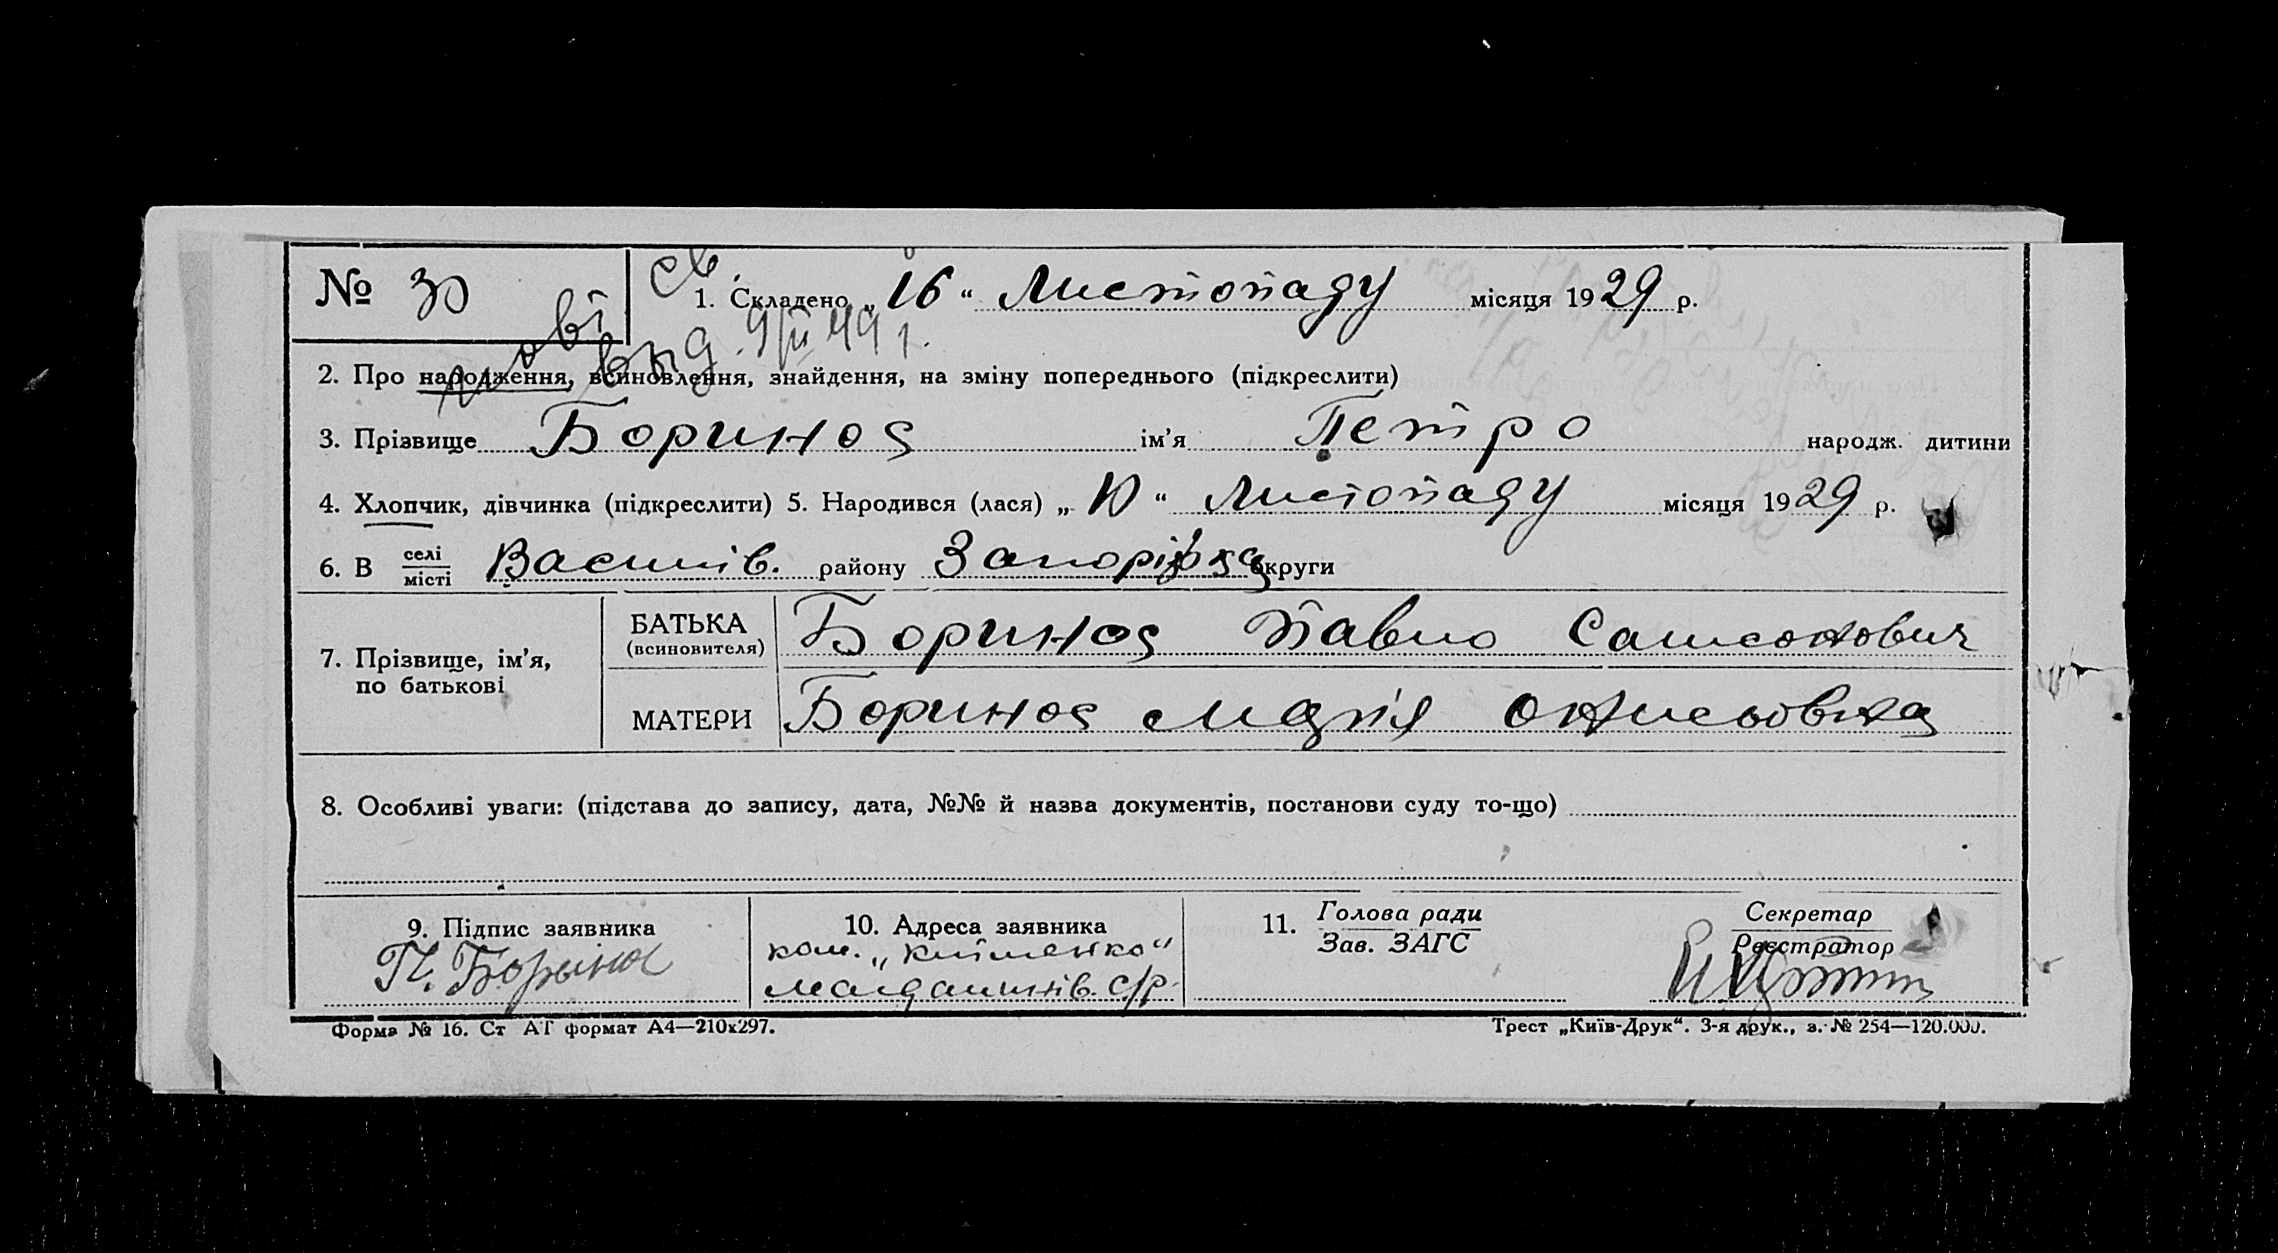 № 30 1. Складено „16“ Листопаду місяця 1929 р.
св.
вид. 9/III 49 г.
2. Про народження, всиновлення, знайдення, на зміну попереднього (підкреслити)
3. Прізвище Боринос ім’я Петро народж. дитини
4. Хлопчик, дівчинка (підкреслити) 5. Народився (лася) „10“ Листопаду місяця 1929 р.
6. В селі
місті Василів. району Запорізьк округи
7. Прізвище, ім’я,
по батькові
БАТЬКА
(всиновителя) Боринос Павло Самсонович
МАТЕРИ Боринос Марія Онисьовна
8. Особливі уваги: (підстава до запису, дата, №№ й назва документів, постанови суду то-що)
9. Підпис заявника
П. Боринос
10. Адреса заявника
ком. „Клименко“
с/р.
11. Голова ради
Зав. ЗАГС
Секретар
Реєстратор
Форма № 16. Ст АТ формат А4—210х297.
Трест „Київ-Друк“. 3-я друк., з. № 254—120.000.